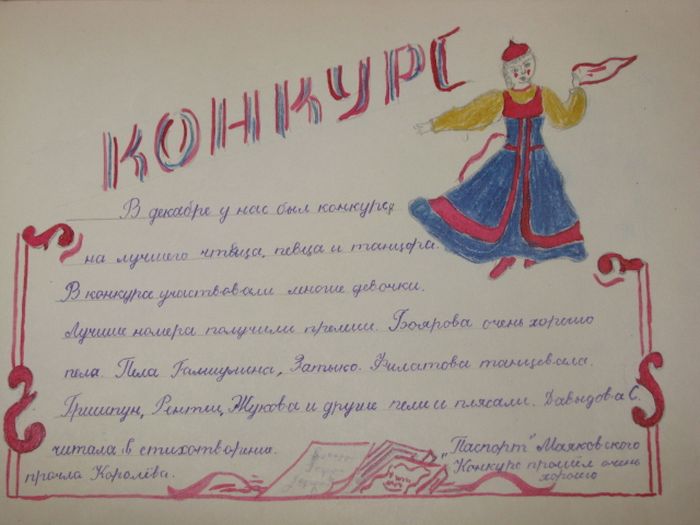 КОНКУРС
В декабре у нас был конкурс
на лучшего чтеца, певца и танцора.
В конкурсе участвовали многие девочки.
Лучшие номера получили премии. Боярова очень хорошо
пела. Пела Гамиулина, Затыко. Филатова танцевала.
Гришпун, Рентец, Жукова и другие пели и плясали. Давыдова С.
читала в стихотворение "Паспорт" Маяковского
прочла Королёва. Конкурс прошёл очень
хорошо